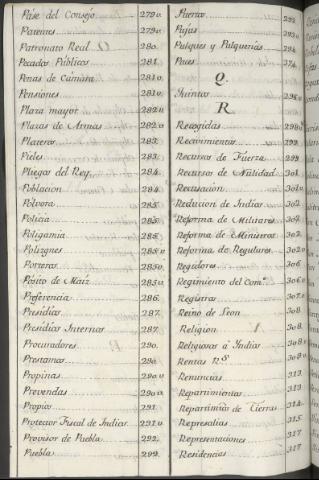 Pase del Consejo 279v.
Patentes 279v.
Patronato Real 280.
Pecados Públicos 281.
Penas de Cámara 281v.
Pensiones 281v.
Plaza mayor 282v.
Plazas de Armas 282v.
Plateros 283.
Pieles 283.
Pliegos del Rey 284.
Poblacion 284.
Pólvora 285.
Policía 285.
Poligamia 285.
Polizones 285v.
Porteros 285v.
Pósito de Maíz 285v.
Preferencia 286.
Presídios 287.
Presídios Internos 287.
Procuradores 290.
Prestamos 290.
Propinas 290v.
Prevendas 290v.
Propios 291.
Protector Fiscal de Indios 291v.
Provisor de Puebla 292.
Puebla 292.
Puertos 293.
Pujas 293v.
Pulques y Pulquerías 294.
Pues 374.
Q.
Quintos 295v.
R
Recogidas 298v.
Recevimientos 299.
Recursos de Fuerza 299.
Recurso de Nulidad 301.
Recusación 301v.
Reduccion de Indios 302.
Reforma de Militares 302.
Reforma de Ministros 302.
Reforma de Regulares 302v.
Regidores 306.
Regimiento del Com.º 306v.
Registros 307.
Reino de Leon 308.
Religion 308.
Religiosos á Indias 308v.
Rentas R.s 309v.
Renuncias 313.
Repartimientos 313.
Repartimto. de Tierras 314.
Represalias 315.
Representaciones 317.
Residencias 317.